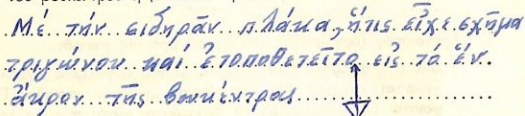 Μέ τήν σιδηράν πλάκα, ἥτις εἶχε σχῆμα
τριγώνου καί ἐτοποθετεῖτο εἰς τό ἕν.
ἄκρον τῆς βουκέντρας